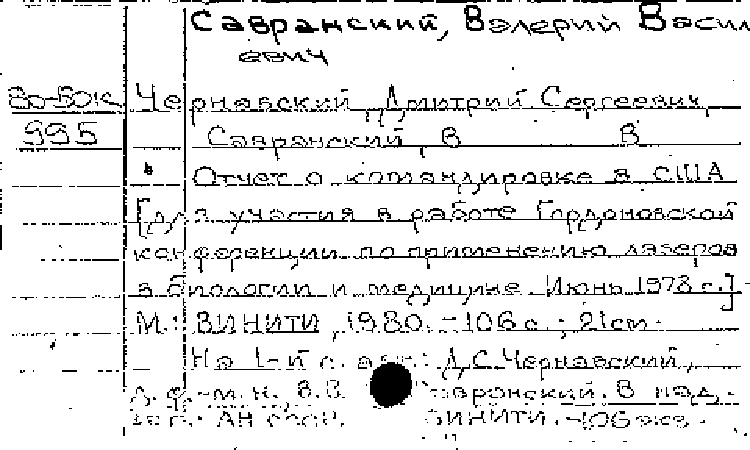 Савранский, Валерий Васил
евич
80-80к Чернавский, Дмитрий Сергеевич,
995 Савранский, В В
Отчет о командировке в США
[для участия в работе Гордоновской
конференции по применению лазеров
в биологии и медицине. Июнь 1978 г.]
М.: ВИНИТИ, 1980. - 106 с.; 21см.
На 1-й с. авт.: Д.С. Чернавский,
ф.-м.н., В.В. Савранский. В над.
АН СССР. ВИНИТИ. - 106 экз.